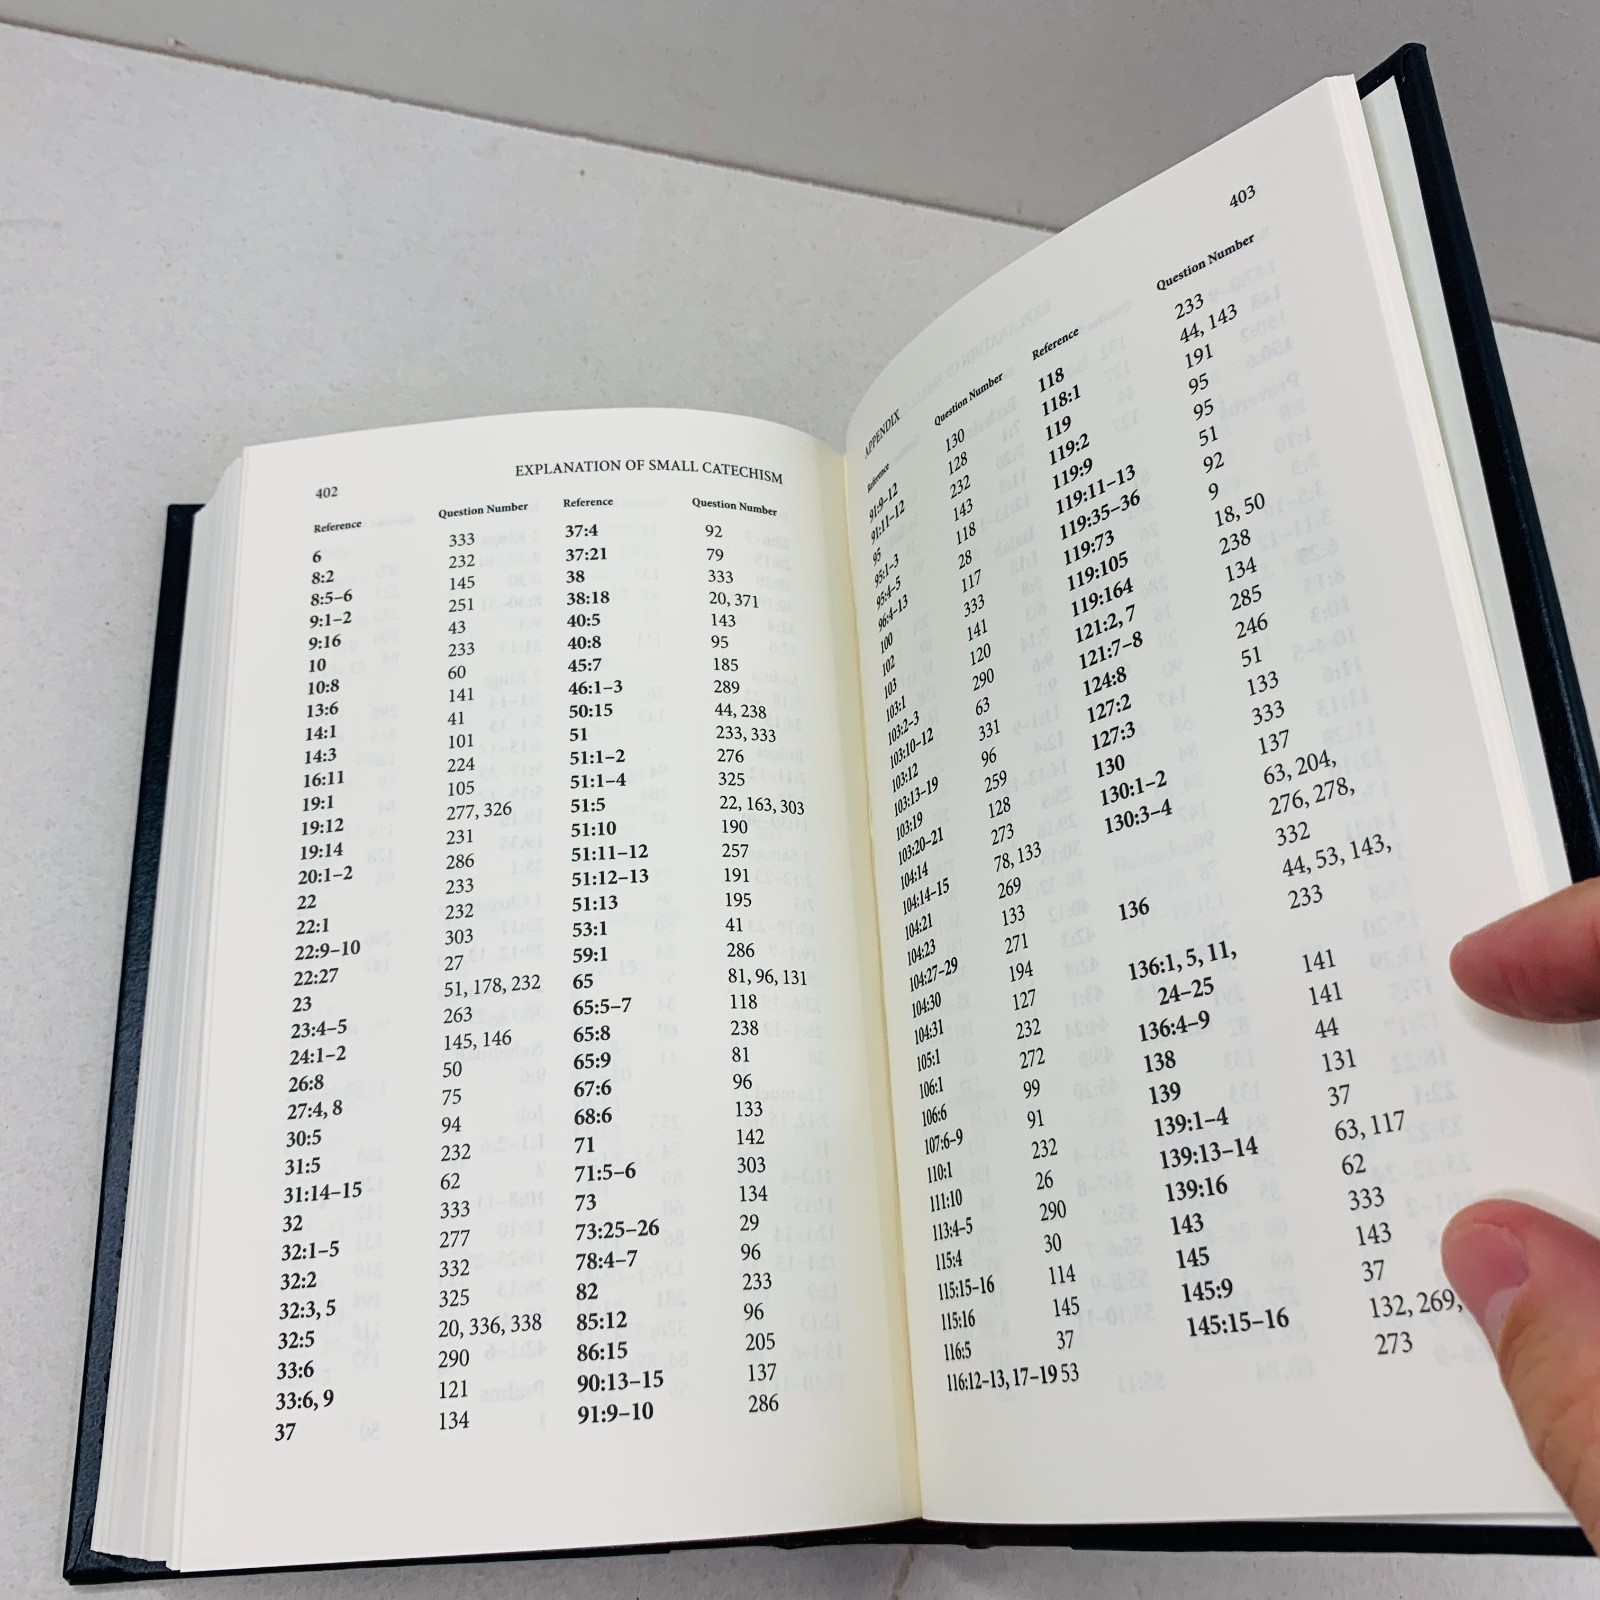 402
EXPLANATION OF SMALL CATECHISM
Reference Question Number
6 333
8:2 232
8:5–6 145
9:1–2 251
9:16 43
10 233
10:8 60
13:6 141
14:1 41
14:3 101
16:11 224
19:1 105
19:12 277, 326
19:14 231
20:1–2 286
22 233
22:1 232
22:9–10 303
22:27 27
23 51, 178, 232
23:4–5 263
24:1–2 145, 146
26:8 50
27:4, 8 75
30:5 94
31:5 232
31:14–15 62
32 333
32:1–5 277
32:2 332
32:3, 5 325
32:5 20, 336, 338
33:6 290
33:6, 9 121
37 134
Reference Question Number
37:4 92
37:21 79
38 333
38:18 20, 371
40:5 143
40:8 95
45:7 185
46:1–3 289
50:15 44, 238
51 233, 333
51:1–2 276
51:1–4 325
51:5 22, 163, 303
51:10 190
51:11–12 257
51:12–13 191
51:13 195
53:1 41
59:1 286
65 81, 96, 131
65:5–7 118
65:8 238
65:9 81
67:6 96
68:6 133
71 142
71:5–6 303
73 134
73:25–26 29
78:4–7 96
82 233
85:12 96
86:15 205
90:13–15 137
91:9–10 286
APPENDIX
403
Reference Question Number
91:9–12 130
91:11–12 128
95 232
95:1–3 143
95:4–5 118
96:4–13 28
100 117
102 333
103 141
103:1 120
103:2–3 290
103:10–12 63
103:12 331
103:13–19 96
103:19 259
103:20–21 128
104:14 273
104:14–15 78, 133
104:21 269
104:23 133
104:27–29 271
104:30 194
104:31 127
105:1 232
106:1 272
106:6 99
107:6–9 91
110:1 232
111:10 26
113:4–5 290
115:4 30
115:15–16 114
115:16 145
116:5 37
116:12–13, 17–19 53
Reference Question Number
118 233
118:1 44, 143
119 191
119:2 95
119:9 95
119:11–13 51
119:35–36 92
119:73 9
119:105 18, 50
119:164 238
121:2, 7 134
121:7–8 285
124:8 246
127:2 51
127:3 133
130 333
130:1–2 137
130:3–4 63, 204,
276, 278,
332
136 44, 53, 143,
233
136:1, 5, 11,
24–25 141
136:4–9 141
138 44
139 131
139:1–4 37
139:13–14 63, 117
139:16 62
143 333
145 143
145:9 37
145:15–16 132, 269,
273